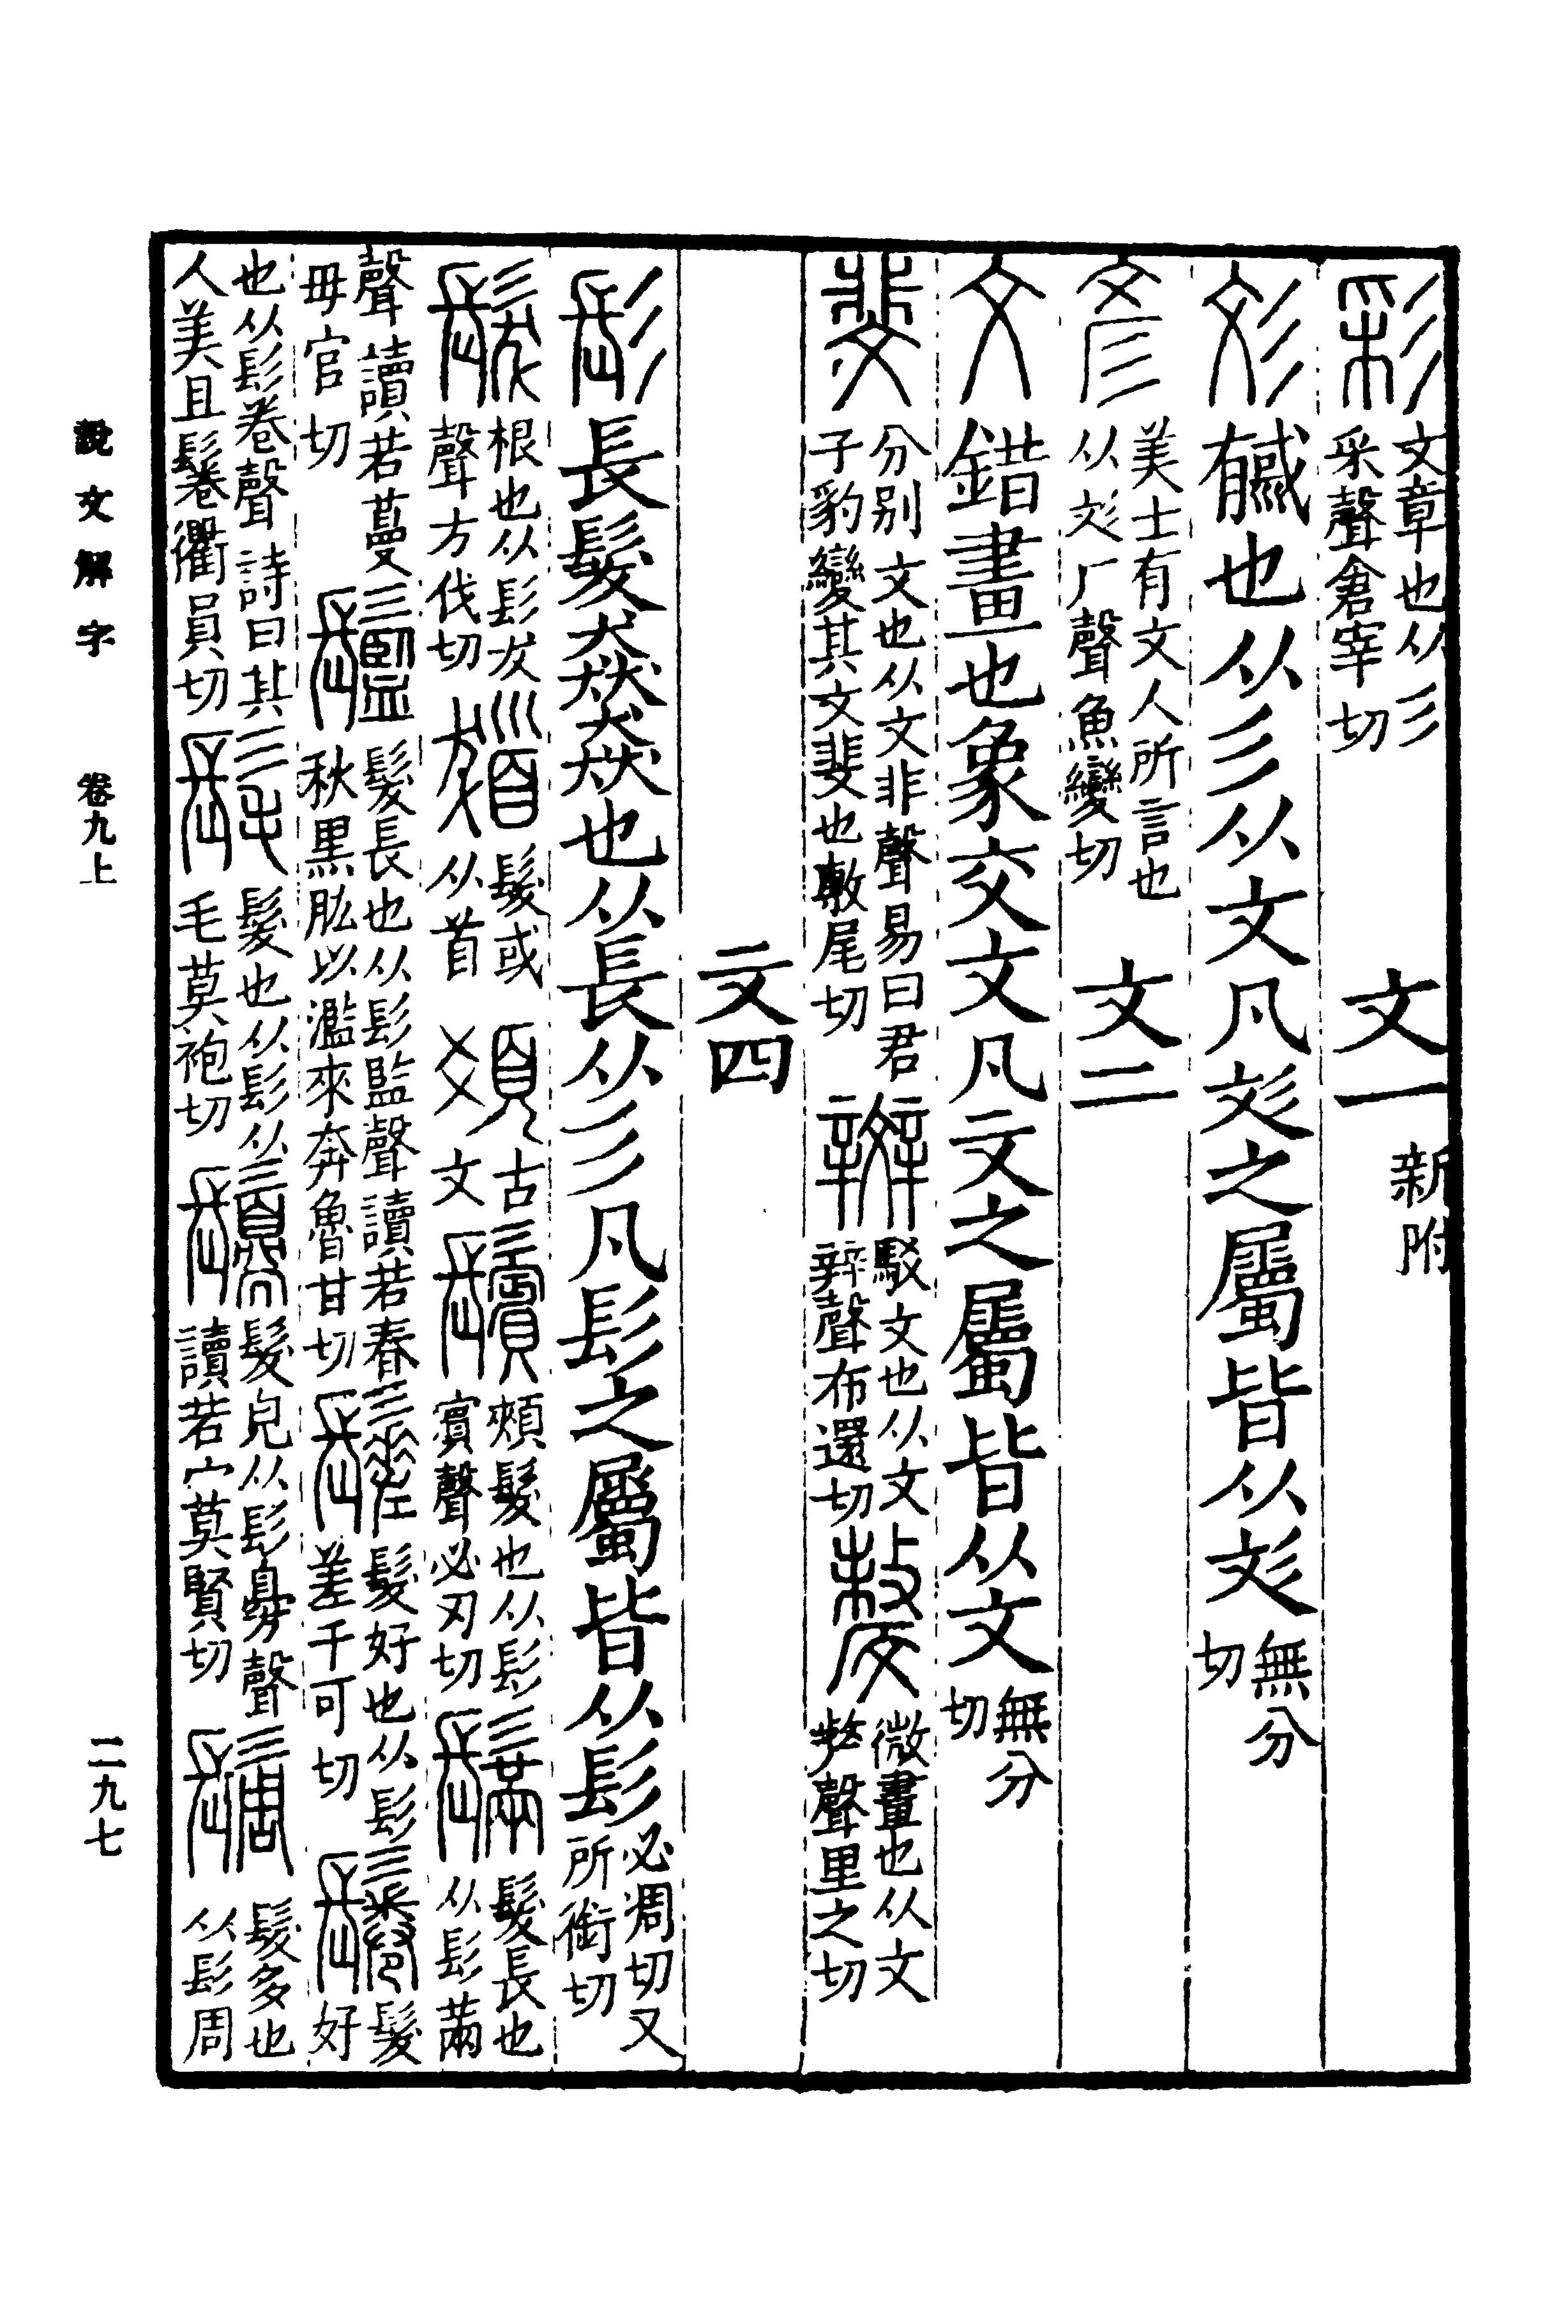 彩文章也从彡采聲倉宰切　文一新附
彣𢒰也从彡从文凡彣之屬皆从彣無分切
彥美士有文人所言也从彣厂聲魚變切　文二
文錯畫也象交文凡文之屬皆从文無分切
斐分别文也从文非聲易曰君子豹變其文斐也敷尾切辬駁文也从文辡聲布還切𣁛微畫也从文𠩺聲里之切
文四
髟長髮猋猋也从長从彡凡髟之屬皆从髟必凋切又所銜切
髮根也从髟犮聲方伐切𩠙髮或从首𩑎古文鬢頰髮也从髟賓聲必刃切𩮠髮長也从髟㒼
聲讀若蔓毋官切鬛髮長也从髟監聲讀若春秋黑肱以濫來奔魯甘切鬊髮好也从髟差千可切鬈髮好
也从髟卷聲詩曰其人美且鬈衢員切髦髮也从髟从毛莫袍切𩯃髮皃从髟𦤝聲讀若宀莫賢切鬜髮多也从髟周
說文解字　卷九上　二九七